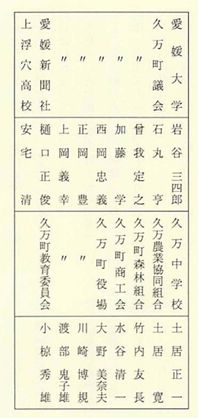 愛媛大学 岩谷三四郎
久万町議会 石丸亨
〃 曾我定之
〃 加藤学
〃 西岡忠義
〃 正岡豊
〃 上岡義幸
愛媛新聞社 樋口正俊
上浮穴高校 安宅清
久万中学校 土居正一
久万農業協同組合 土居寛
久万町森林組合 竹内友長
久万町商工会 水谷清一
久万町役場 大野美奈夫
〃 川崎博規
〃 渡部鬼子雄
久万町教育委員会 小椋秀雄